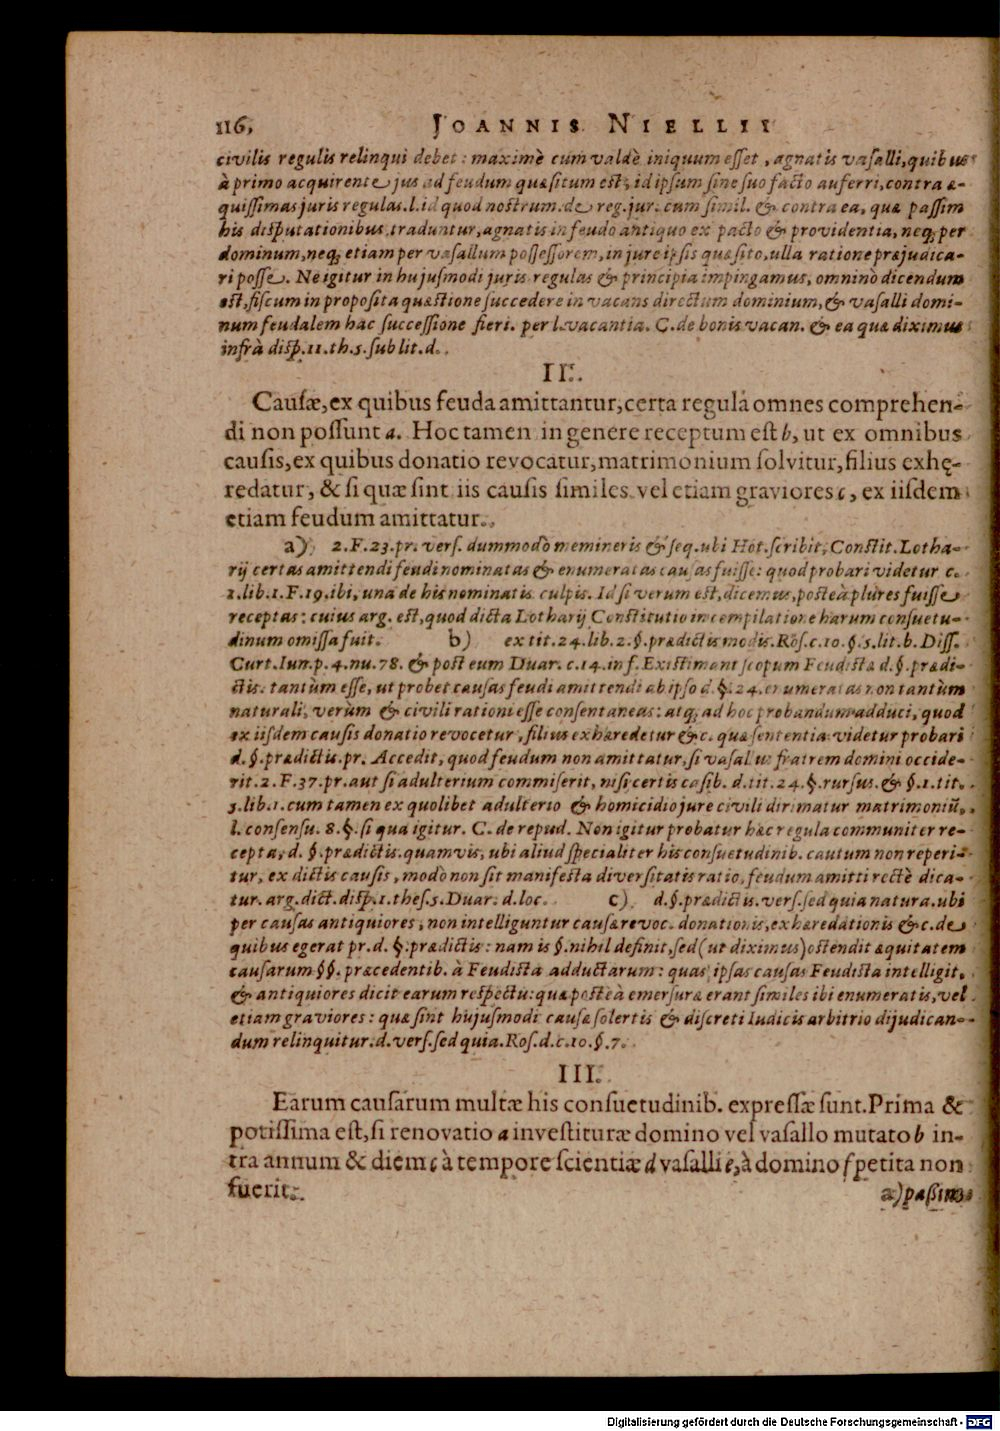 116, JOANNIS NIELLII
civilis regulis relinqui debet: maximè cum valdè iniquum esset, agnatis vasalli, quibus
à primo acquirente jus ad feudum quæsitum est, id ipsum sine suo facto auferri, contra æ-
quissimas juris regulas. l. id quod nostrum. de reg. jur. cum simil. & contra ea, quæ passim
his disputationibus traduntur, agnatis in feudo antiquo ex pacto & providentia, neq; per
dominum, neq; etiam per vasallum possessorem, in jure ipsis quæsito, ulla ratione præjudica-
ri posse. Ne igitur in hujusmodi juris regulas & principia impingamus, omninò dicendum
est, fiscum in proposita quæstione succedere in vacans directum dominium, & vasalli domi-
num feudalem hac successione fieri. per l. vacantia. C. de bonis vacan. & ea quæ diximus
infrà disp. 11. th. 5. sub lit. d.
II.
Causæ, ex quibus feuda amittantur, certa regulâ omnes comprehen-
di non possunt a. Hoc tamen in genere receptum est b, ut ex omnibus
causis, ex quibus donatio revocatur, matrimonium solvitur, filius exhę-
redatur, & si quæ sint iis causis similes vel etiam graviores c, ex iisdem
etiam feudum amittatur.
a) 2. F. 23. pr. vers. dummodo memineris & seq. ubi Hot. scribit, Constit. Lotha-
rij certas amittendi feudi nominatas & enumeratas causas fuisse: quod probari videtur c.
1. lib. 1. F. 19. ibi, una de his nominatis culpis. Id si verum est, dicemus, posteà plures fuisse
receptas: cuius arg. est, quod dicta Lotharij Constitutio in compilatione harum consuetu-
dinum omissa fuit. b) ex tit. 24. lib. 2. §. prædictis modis. Ros. c. 10. §. 5. lit. b. Diss.
Curt. Iun. p. 4. nu. 78. & post eum Duar. c. 14. inf. Existimant scopum Feudistæ d. §. prædi-
ctis. tantùm esse, ut probet causas feudi amittendi ab ipso d. §. 24. enumeratas non tantùm
naturali, verùm & civili rationi esse consentaneas: atq; ad hoc probandum adduci, quod
ex iisdem causis donatio revocetur, filius exhæredetur & c. quæ sententia videtur probari
d. §. prædictis. pr. Accedit, quod feudum non amittatur, si vasallus fratrem domini occide-
rit. 2. F. 37. pr. aut si adulterium commiserit, nisi certis casib. d. tit. 24. §. rursus. & §. 1. tit.
5. lib. 1. cum tamen ex quolibet adulterio & homicidio jure civili dirimatur matrimoniũ,
l. consensu. 8. §. si qua igitur. C. de repud. Non igitur probatur hæc regula communiter re-
cepta, d. §. prædictis. quamvis, ubi aliud specialiter his consuetudinib. cautum non reperi-
tur, ex dictis causis, modò non sit manifesta diversitatis ratio, feudum amitti rectè dica-
tur. arg. dict. disp. 1. thes. 5. Duar. d. loc. c) d. §. prædictis. vers. sed quia natura. ubi
per causas antiquiores, non intelliguntur causæ revoc. donationis, exhæredationis & c. de
quibus egerat pr. d. §. prædictis: nam is §. nihil definit, sed (ut diximus) ostendit æquitatem
causarum §§. præcedentib. à Feudista adductarum: quas ipsas causas Feudista intelligit,
& antiquiores dicit earum respectu: quæ posteà emersuræ erant similes ibi enumeratis, vel
etiam graviores: quæ sint hujusmodi causæ solertis & discreti Iudicis arbitrio dijudican-
dum relinquitur. d. vers. sed quia. Ros. d. c. 10. §. 7.
III.
Earum causarum multæ his consuetudinib. expressæ sunt. Prima &
potissima est, si renovatio a investituræ domino vel vasallo mutato b in-
tra annum & diem c à tempore scientiæ d vasalli e, à domino f petita non
fuerit.
a) passim
Digitalisierung gefördert durch die Deutsche Forschungsgemeinschaft - DFG